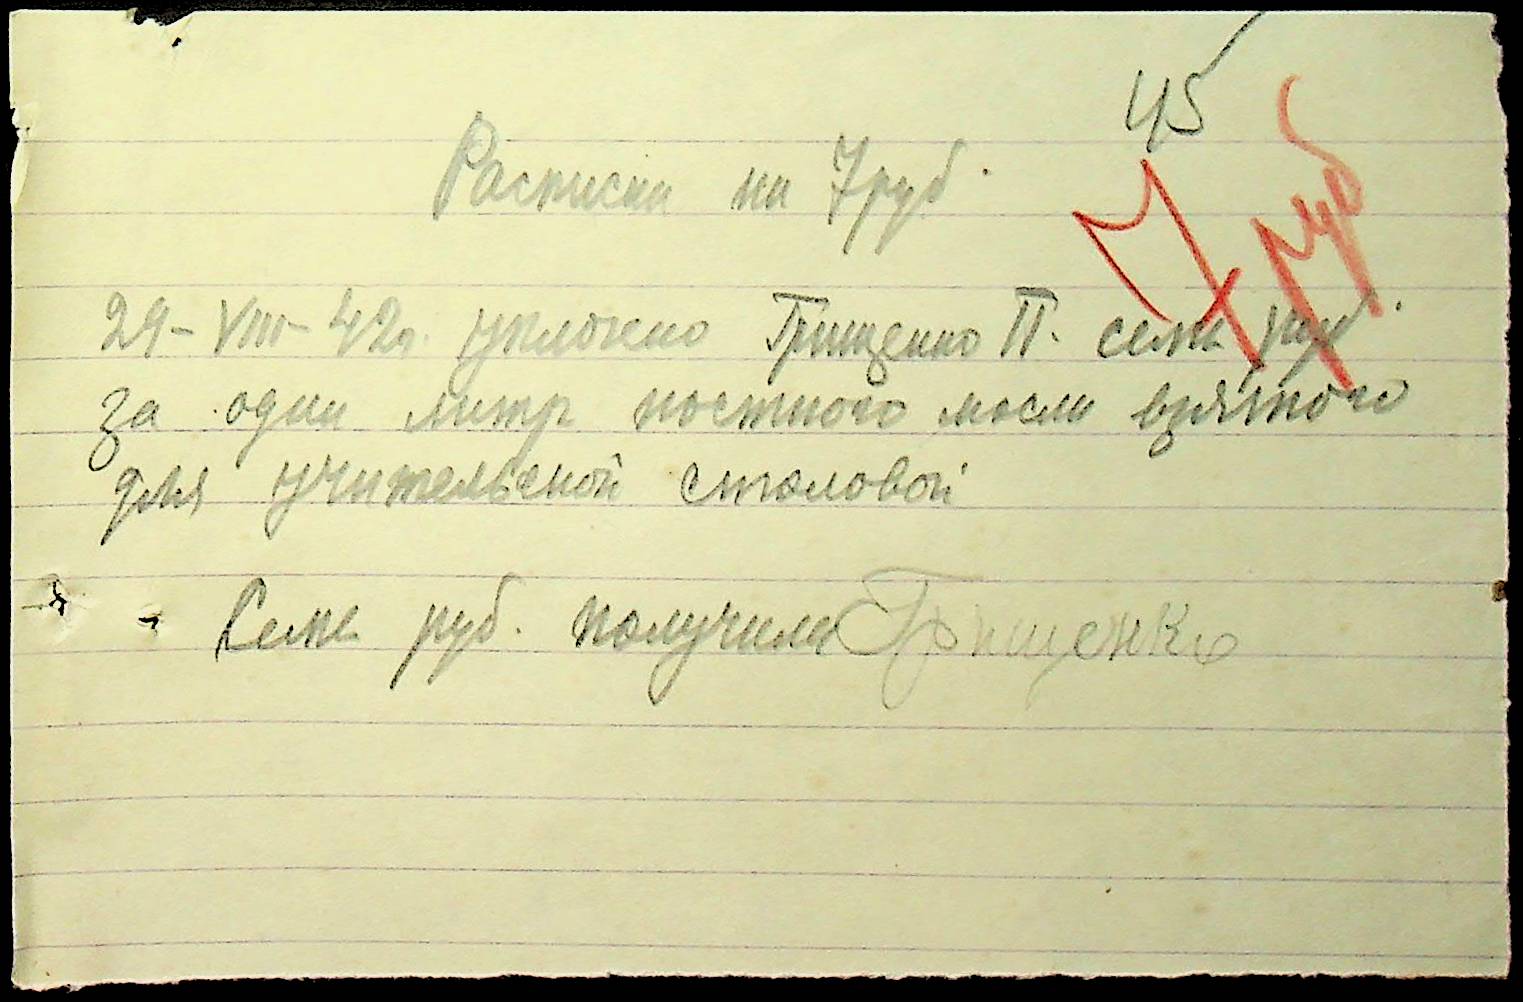 45
7 руб
Расписка на 7 руб.
29-VIII-42г. уплочено Грищенко П. семь руб.
за один литр постного масла взятого
для учительской столовой
Семь руб. получила Грищенко